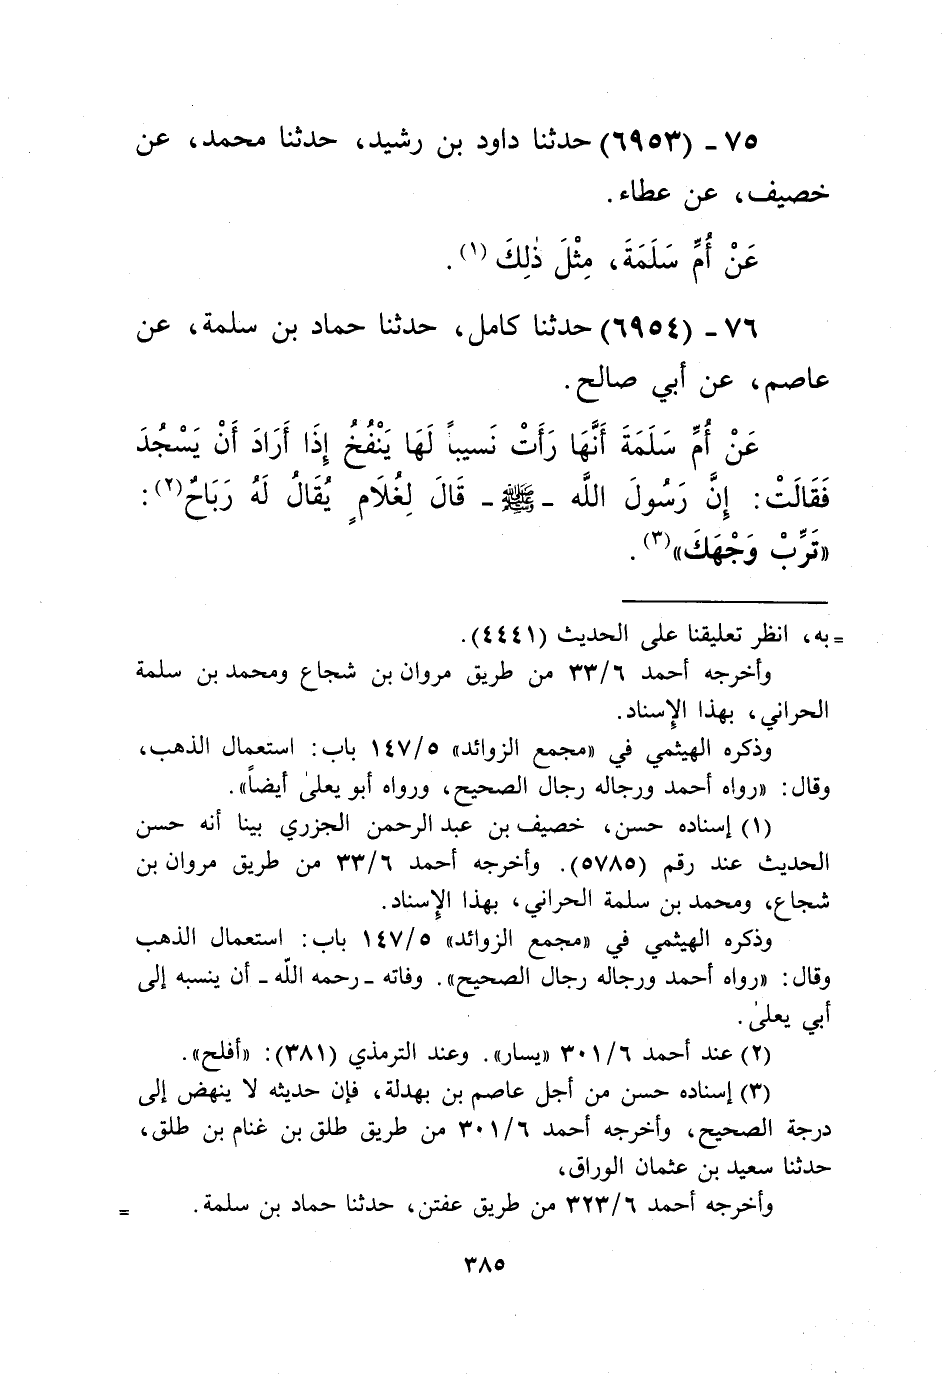 ٧٥ - (٦٩٥٣) حدثنا داود بن رشيد، حدثنا محمد، عن
خصيف، عن عطاء.
عَنْ أُمِّ سَلَمَةَ، مِثْلَ ذٰلِكَ (١).
٧٦ - (٦٩٥٤) حدثنا كامل، حدثنا حماد بن سلمة، عن
عاصم، عن أبي صالح.
عَنْ أُمِّ سَلَمَةَ أَنَّهَا رَأَتْ نَسيباً لَهَا يَنْفُخُ إِذَا أَرَادَ أَنْ يَسْجُدَ
فَقَالَتْ: إِنَّ رَسُولَ اللَّه - ﷺ - قَالَ لِغُلَامٍ يُقَالُ لَهُ رَبَاحٌ(٢):
«تَرِّبْ وَجْهَكَ»(٣).
= به، انظر تعليقنا على الحديث (٤٤٤١).
وأخرجه أحمد ٣٣/٦ من طريق مروان بن شجاع ومحمد بن سلمة
الحراني، بهذا الإسناد.
وذكره الهيثمي في «مجمع الزوائد» ١٤٧/٥ باب: استعمال الذهب،
وقال: «رواه أحمد ورجاله رجال الصحيح، ورواه أبو يعلىٰ أيضاً».
(١) إسناده حسن، خصيف بن عبد الرحمن الجزري بينا أنه حسن
الحديث عند رقم (٥٧٨٥). وأخرجه أحمد ٣٣/٦ من طريق مروان بن
شجاع، ومحمد بن سلمة الحراني، بهذا الإسناد.
وذكره الهيثمي في «مجمع الزوائد» ١٤٧/٥ باب: استعمال الذهب
وقال: «رواه أحمد ورجاله رجال الصحيح». وفاته - رحمه اللّه - أن ينسبه إلى
أبي يعلىٰ.
(٢) عند أحمد ٣٠١/٦ «يسار». وعند الترمذي (٣٨١): «أفلح».
(٣) إسناده حسن من أجل عاصم بن بهدلة، فإن حديثه لا ينهض إلى
درجة الصحيح، وأخرجه أحمد ٣٠١/٦ من طريق طلق بن غنام بن طلق،
حدثنا سعيد بن عثمان الوراق،
وأخرجه أحمد ٣٢٣/٦ من طريق عفتن، حدثنا حماد بن سلمة. =
٣٨٥